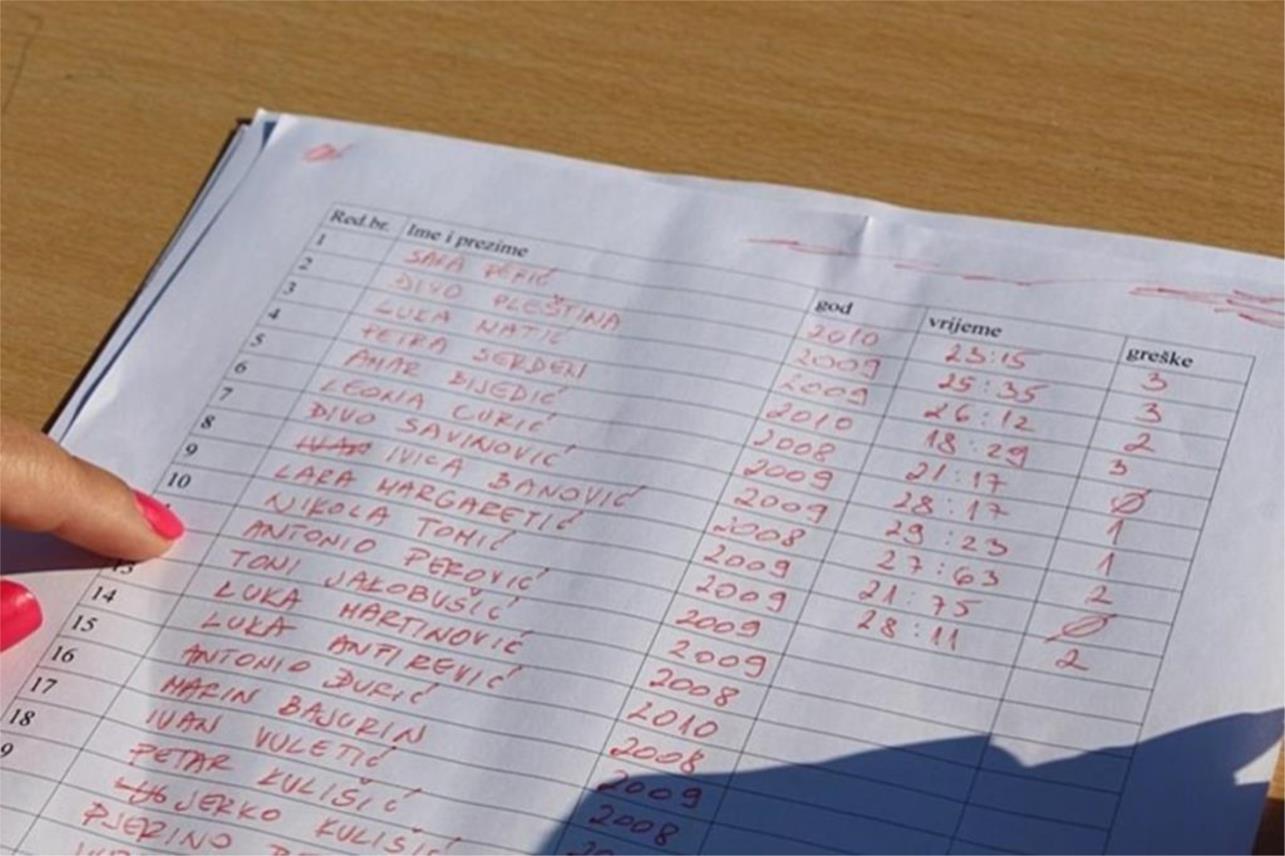 Red.br. Ime i prezime god vrijeme greške
1 SARA PERIĆ 2010 23:15 3
2 DIVO PLEŠTINA 2009 25:35 3
3 LUKA MATIĆ 2009 26:12 2
4 PETRA SERDEN 2010 18:29 3
5 AMAR BIJEDIĆ 2008 21:17 Ø
6 LEONA CURIĆ 2009 28:17 1
7 DIVO SAVINOVIĆ 2009 29:23 1
8 IVICA BANOVIĆ 2008 27:63 2
9 LARA MARGARETIĆ 2009 21:75 Ø
10 NIKOLA TOMIĆ 2009 28:11 2
ANTONIO PEROVIĆ 2009
TONI JAKOBUŠIĆ 2009
13 LUKA MARTINOVIĆ 2008
14 LUKA ANTIREVIĆ 2010
15 ANTONIO ĐURIĆ 2008
16 MARIN BAJURIN 2009
17 IVAN VULETIĆ 2008
18 PETAR KULIŠIĆ
9 JERKO KULIŠIĆ
PJERINO